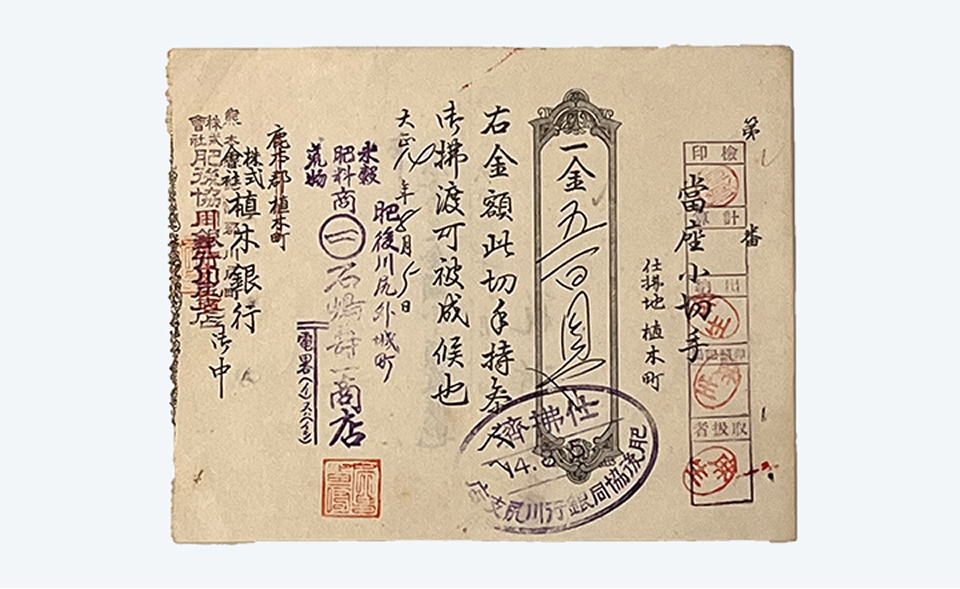 第 番
當座小切手
仕拂地 植木町
檢印
計算
出納
取扱者
一金五百圓
右金額此切手持参人
御拂渡可被成候也
大正 年8月5日
肥後川尻外城町
米穀
肥料商
荒物
石嶋壽一商店
電畧(イス)又ハ(イ)
鹿本郡植木町
株式
會社植木銀行 御中
熊本
株式
會社肥後協同銀行川尻支店
仕拂濟
14.8.5
肥後協同銀行川尻支店